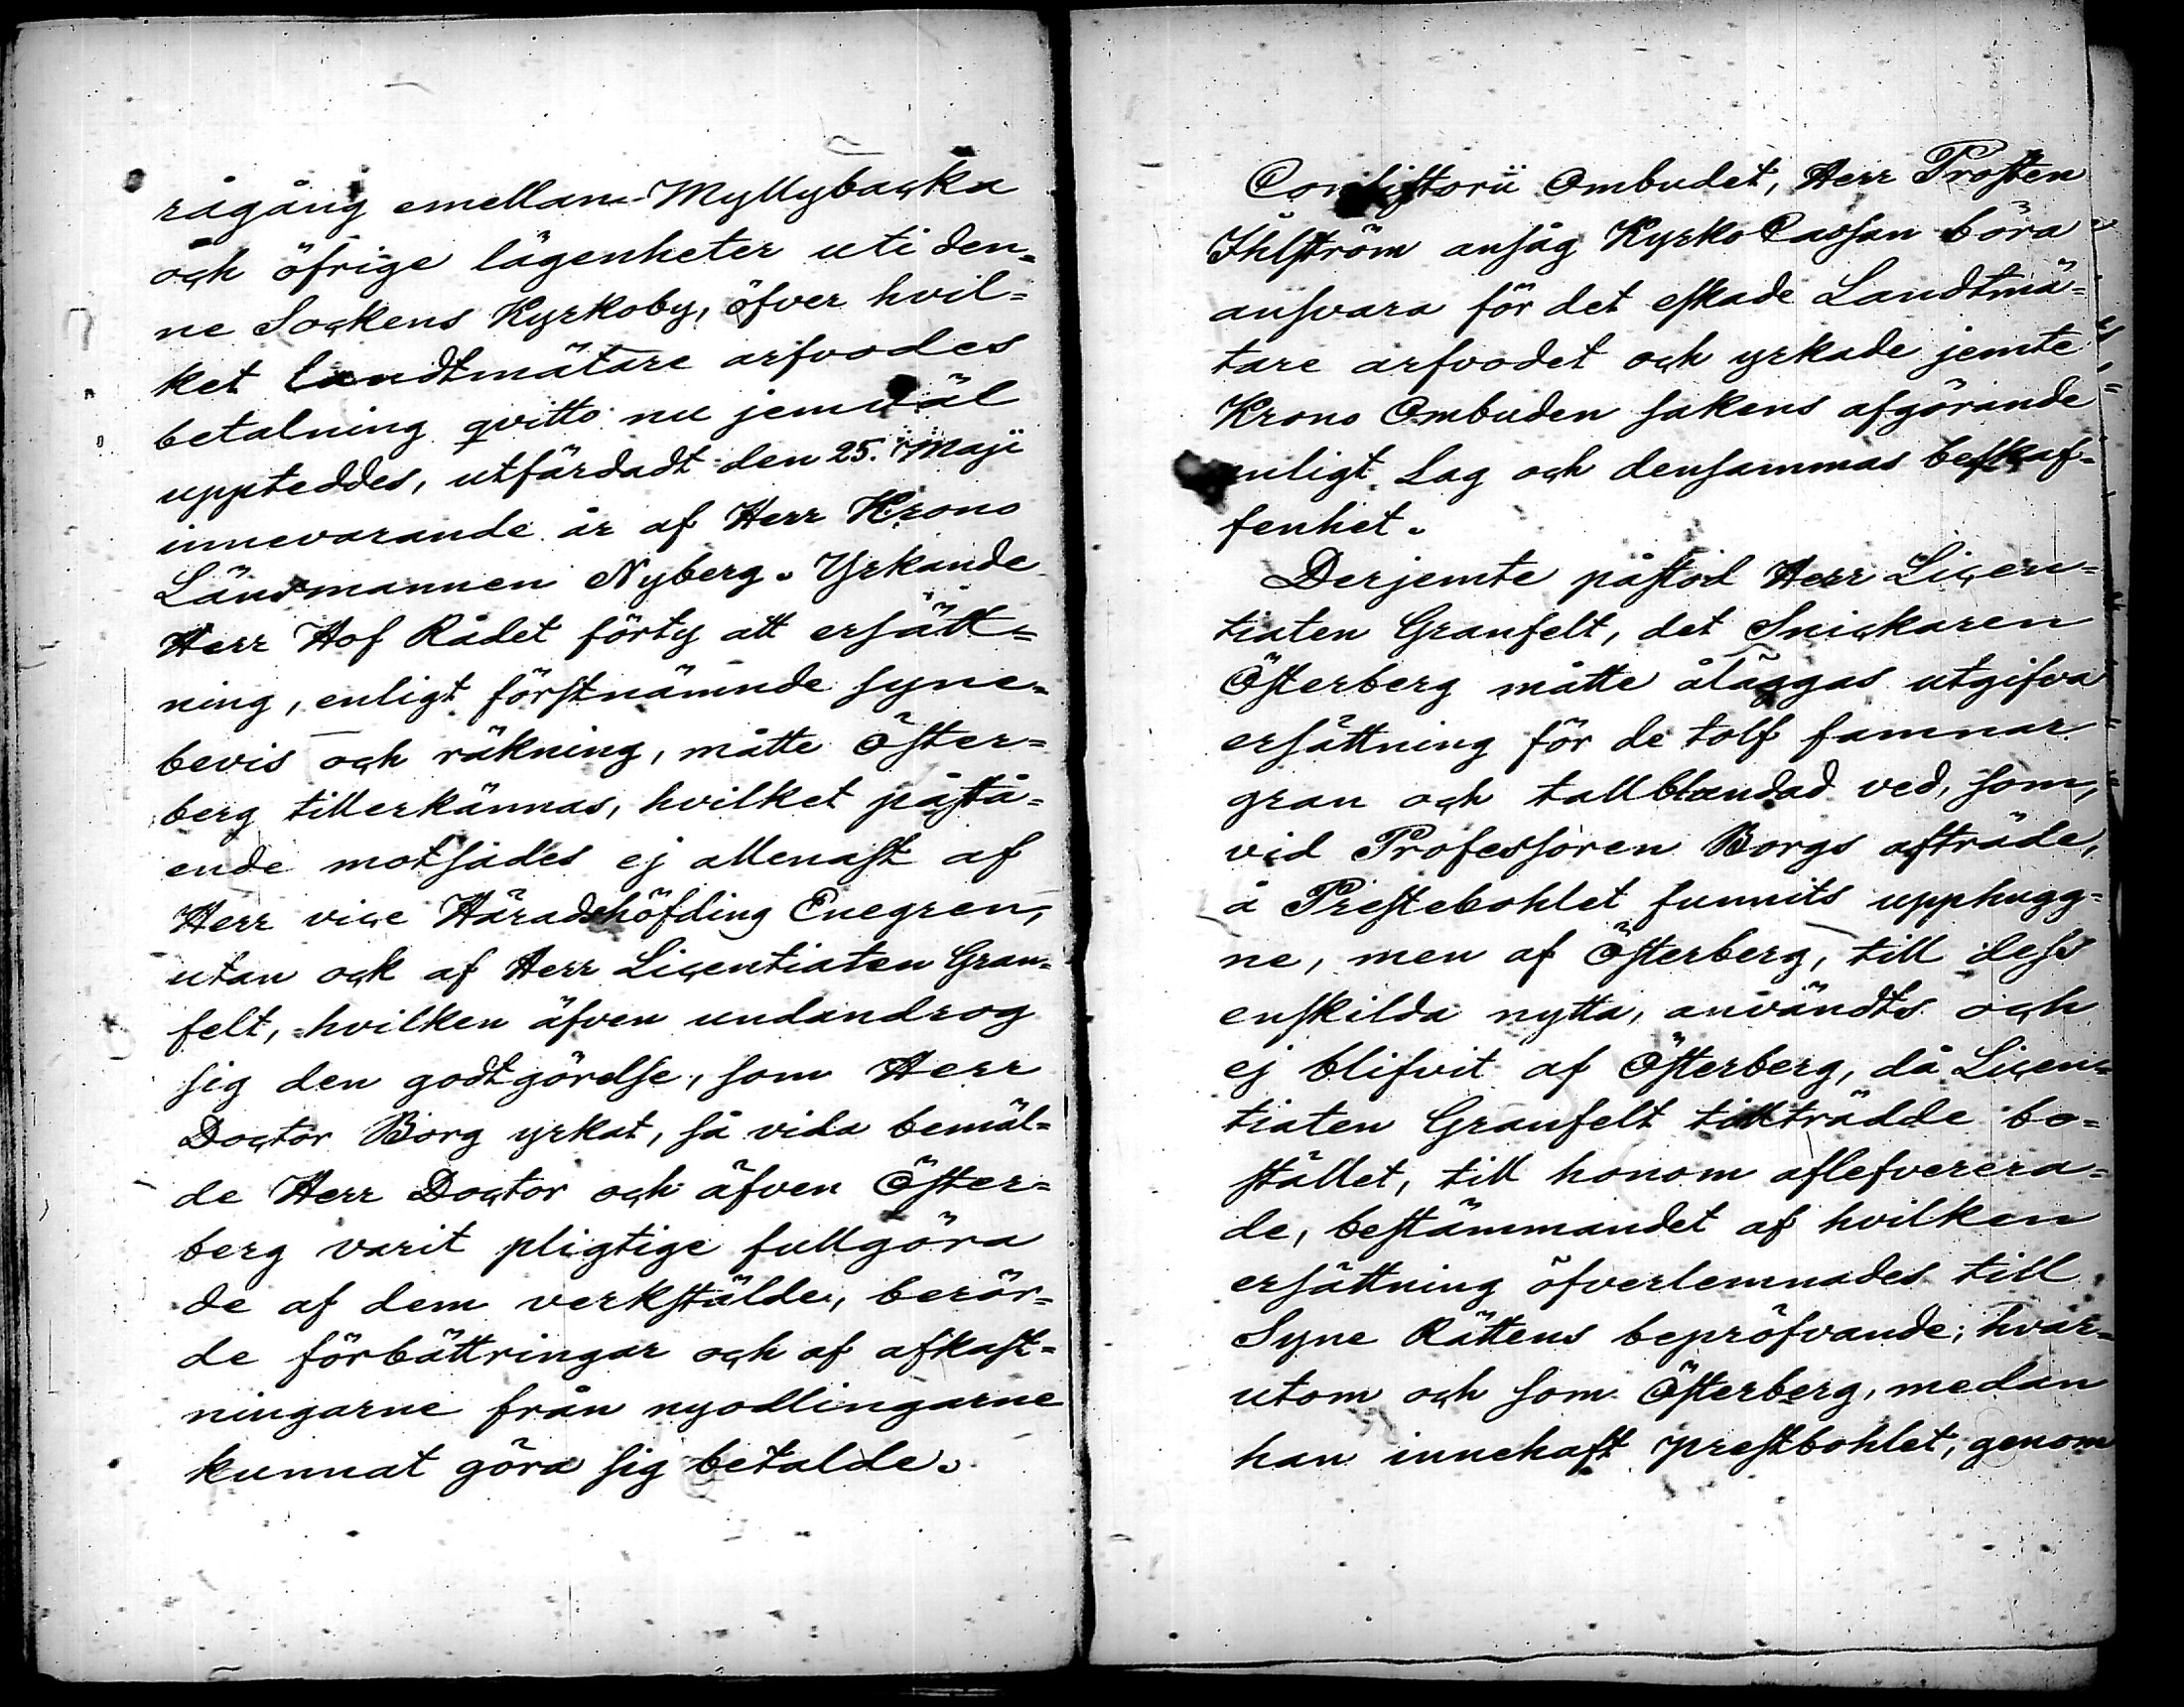 rågång emellan Myllybacka
och öfrige lägenheter uti den=
ne Sockens Kyrkoby, öfver hvil=
ket landtmätare arfvodes
betalning qvitto nu jemväl
uppteddes, utfärdadt den 25. Maji
innevarande år af Herr Krono
Länsmannen Nyberg. Yrkande
Herr Hof Rådet förty att ersätt=
ning, enligt förstnämnde syne=
bevis och räkning, måtte Öster=
berg tillerkännas, hvilket påstå=
ende motsades ej allenast af
Herr vice Häradshöfding Enegren,
utan ock af Herr Licentiaten Gran=
felt, hvilken äfven undandrog
sig den godtgörelse, som Herr
Doctor Borg yrkat, så vida bemäl=
de Herr Doctor och äfven Öster=
berg varit pligtige fullgöra
de af dem verkstälde, berör=
de förbättringar och af afkast=
ningarne från nyodlingarne
kunnat göra sig betalde.
Consistorii Ombudet, Herr Prosten
Ihlström ansåg Kyrko Cassan böra
ansvara för det eskade Landtmä=
tare arfvodet och yrkade jemte
Krono Ombuden sakens afgörande
enligt Lag och densammas beskaf=
fenhet.
Derjemte påstod Herr Licen=
tiaten Granfelt, det Snickaren
Österberg måtte åläggas utgifva
ersättning för de tolf famnar
gran och tallblandad ved, som,
vid Professoren Borgs afträde,
å Prestebohlet funnits upphugg=
ne, men af Österberg, till dess
enskilda nytta, användts och
ej blifvit af Österberg, då Licen=
tiaten Granfelt tillträdde bo=
stället, till honom aflefverera=
de, bestämmandet af hvilken
ersättning öfverlemnades till
Syne Rättens bepröfvande; hvar=
utom och som Österberg, medan
han innehaft prestbohlet, genom